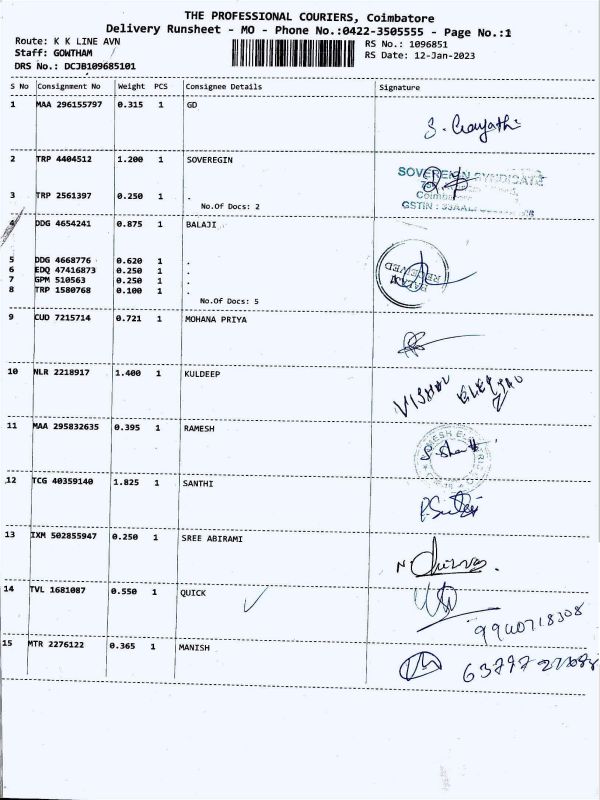 THE PROFESSIONAL COURIERS, Coimbatore
Delivery Runsheet - MO - Phone No.:0422-3505555 - Page No.:1
Route: K K LINE AVN
RS No.: 1096851
Staff: GOWTHAM
RS Date: 12-Jan-2023
DRS No.: DCJB109685101
S No Consignment No Weight PCS Consignee Details Signature
1 MAA 296155797 0.315 1 GD
S. Gayathi
2 TRP 4404512 1.200 1 SOVEREGIN
SOVEREIGN SYNDICATE
3 TRP 2561397 0.250 1 .
No.Of Docs: 2
GSTIN : 33AAL
4 DDG 4654241 0.875 1 BALAJI
5 DDG 4668776 0.620 1 .
6 EDQ 47416873 0.250 1 .
7 GPM 510563 0.250 1 .
8 TRP 1580768 0.100 1 .
BALAJI
RECEIVED
No.Of Docs: 5
9 CUD 7215714 0.721 1 MOHANA PRIYA
10 NLR 2218917 1.400 1 KULDEEP
VISHAL
11 MAA 295832635 0.395 1 RAMESH
12 TCG 40359140 1.825 1 SANTHI
13 IXM 502855947 0.250 1 SREE ABIRAMI
14 TVL 1681087 0.550 1 QUICK
9940718308
15 MTR 2276122 0.365 1 MANISH